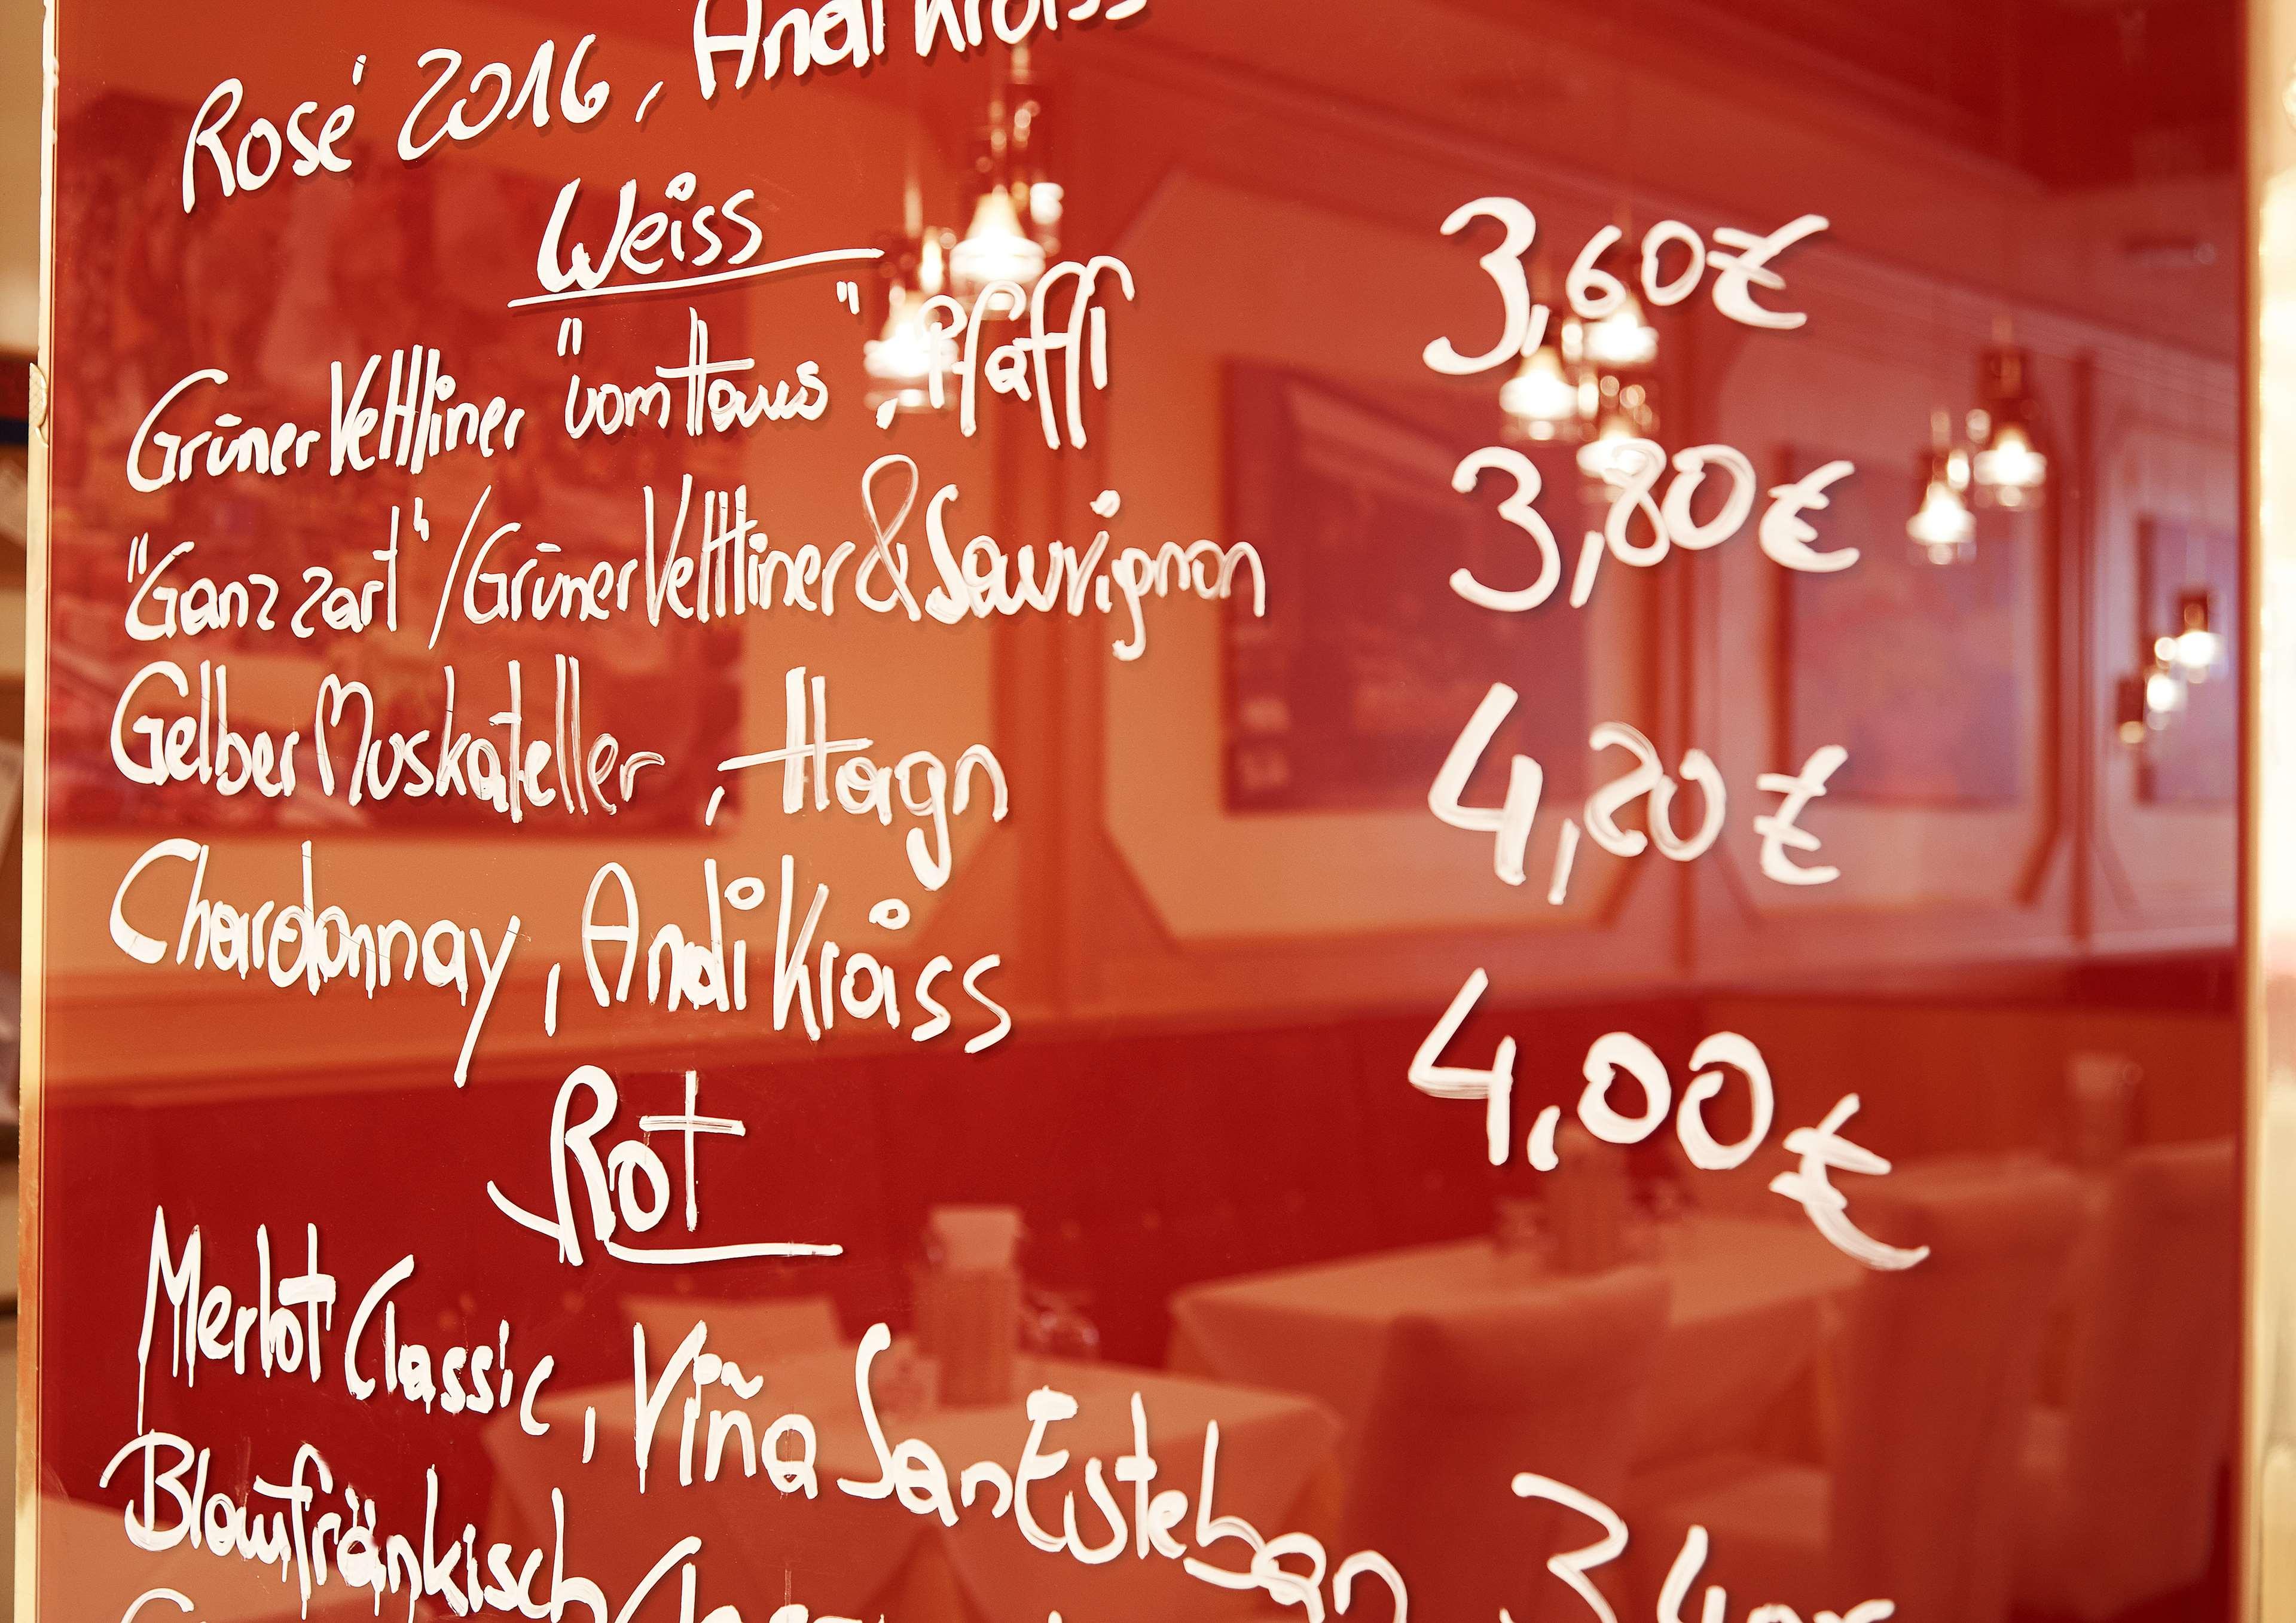 Rosé 2016, Andi Kroiss
Weiss
Grüner Veltliner "vom Haus", Pfaffl 3,60€
"Ganz zart" / Grüner Veltliner & Sauvignon 3,80€
Gelber Muskateller, Hagn 4,20€
Chardonnay, Andi Kroiss 4,00€
Rot
Merlot Classic, Viña San Esteban
Blaufränkisch